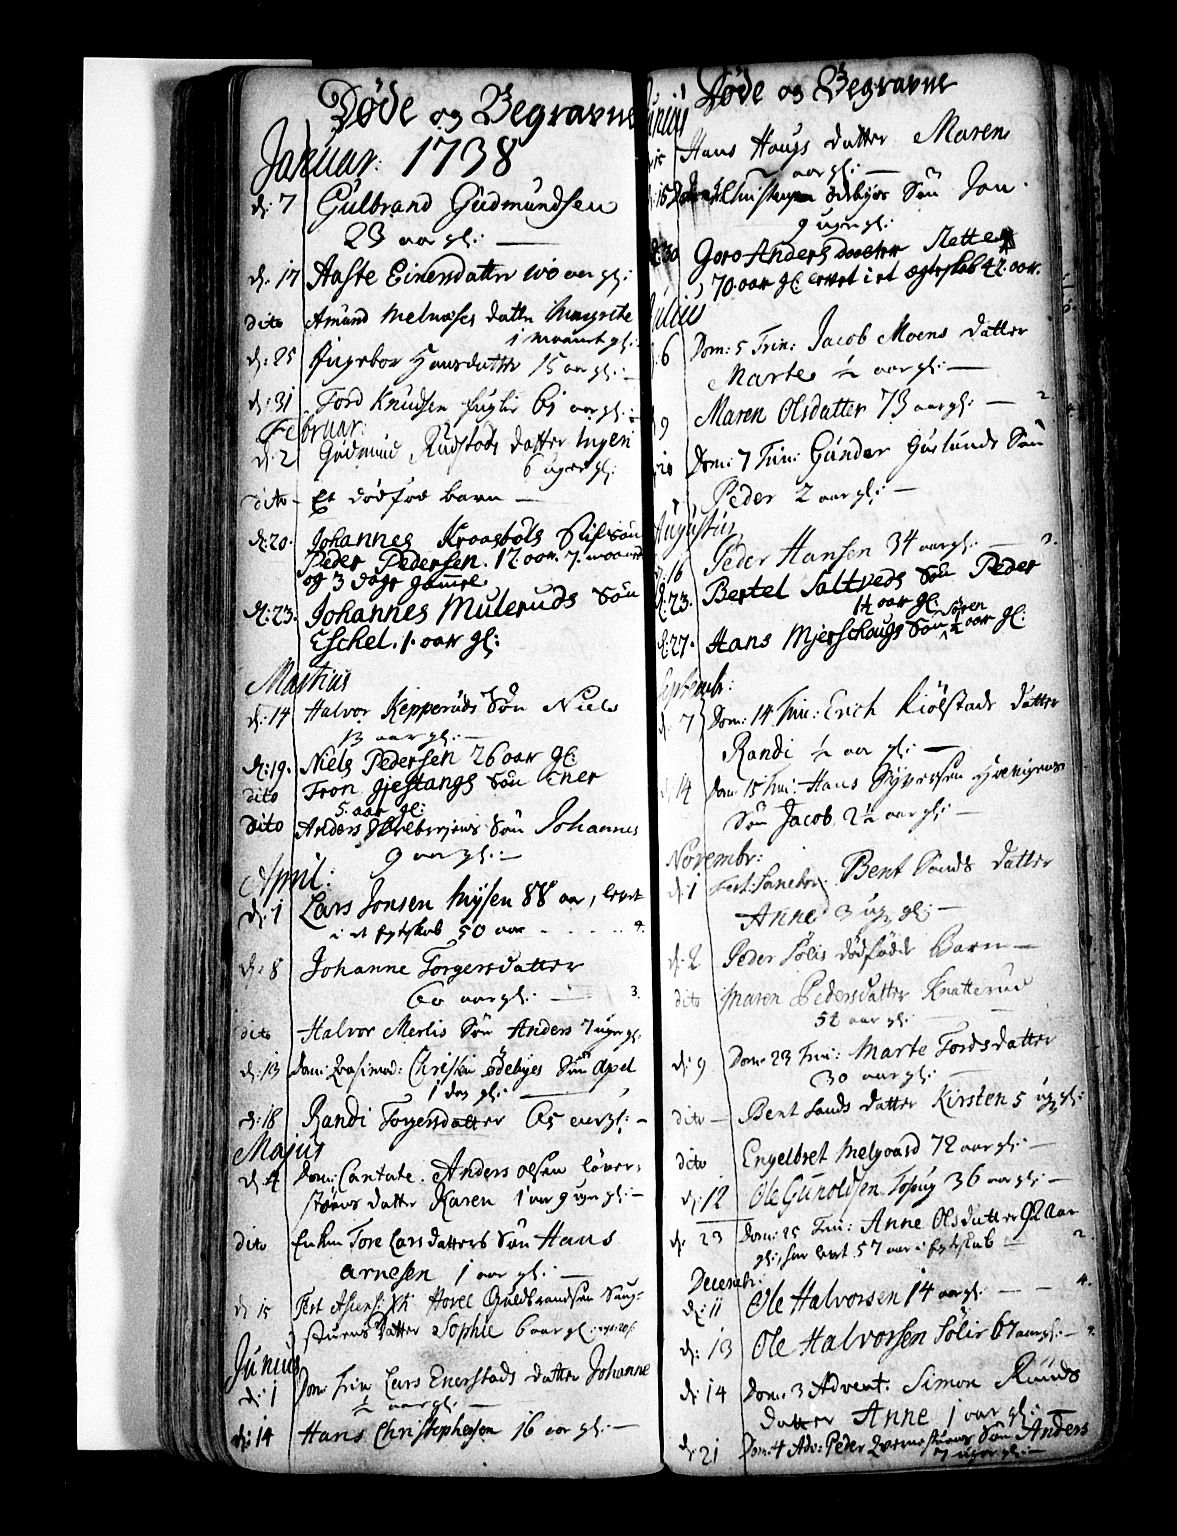 Døde og Begravne
Januar: 1738
d: 7 Gulbrand Gudmundsen
23 aar gl: —
d: 17 Aaste Einersdatter 100 aar gl:
dito Amund Melnæses datter Margrete
1 maanet gl:
d: 25 Ingebor Hansdatter 15 aar gl: —
d: 31 Tord Knudsen 61 aar gl: —
Februar:
d: 2 Gudmund Rudstads datter Ingeri
6 uger gl:
dito — Et dødfød barn —
d: 20. Johannes Kroasbøls Stifsøn
Peder Pedersen. 12 aar. 7. maan
og 3 dage gamle
d: 23. Johannes Muleruds Søn
Eschel. 1. aar gl:
Martius
d: 14 Halvor Kepperuds Søn Niels
13 aar gl: —
d: 19. Niels Pedersen 26 aar gl:
dito Tron Gjestangs Søn Ener
5. aar gl:
dito Anders Søn Johannes
9 aar gl: —
April:
d: 1 Lars Jonsen Mysen 88 aar, levet
i et Egteskab 50 aar . . . . . 4.
d: 8 Johanne Torgersdatter
60 aar gl: — 3.
dito Halvor Merlis Søn Anders 7 uger gl.
d: 13 Dom: Qvasimod: Christen Ødebyes Søn Apel
1 dag gl: —
d: 18 Randi Torgersdatter 65 aar gl: —
Majus
d: 4 Dom: Cantate. Anders Olsen Løver-
støens datter Karen 1 aar 9 uger gl: —
dito Enken Tore Larsdatters Søn Hans
Arnesen 1 aar gl: —
d: 15 Fest Ascens: Xti Hovel Guldbrandsen Saug-
stuens datter Sophie 6 aar gl:
Junius
d: 1 Dom Trin Lars Enerstads datter Johanne
½ aar gl: —
d: 14 Hans Christophersen 16 aar gl: —
Døde og Begravne
Junius
d: 15 Hans Haugs datter Maren
aar gl: —
d: 15 Christensen Ødebyes Søn Jon.
9 uger gl:
d: 30 Goro Anders daatter Mette
70 aar gl: levet i et egteskab 42 aar.
Julius
d: 6 Dom: 5 Trin: Jacob Moens datter
Marte ½ aar gl: —
9 Maren Olsdatter 73 aar gl: — 2
Dom: 7 Trin: Gunder Søn
Peder 2 aar gl: —
Augustus
d: 16 Peder Hansen 34 aar gl: —
d: 23. Bertel Saltveds Søn Peder
1½ aar gl:
d: 27. Hans Mjerschaugs Søn Søren ½ aar gl:
Septembr:
d: 7 Dom: 14 Trin: Erich Kiølstads datter
Randi ½ aar gl: —
d: 14 Dom 15 Trin: Hans Syversen
Søn Jacob 2½ aar gl: —
Novembr:
d: 1 Bent Sands datter
Anne 3 ug. gl: —
d: 2 Peder Sølis dødfødde Barn —
dito Maren Pedersdatter Knatterud
52 aar gl: —
d: 9 Dom: 23 Trin: Marte Tordsdatter
30 aar gl: —
dito — Bent Sands datter Kirsten 5 ug. gl:
dito Engelbret Melgaard 72 aar gl: —
d: 12 Ole Gunoldsen 36 aar gl: —
d: 23 Dom: 25 Trin: Anne Olsdatter 92 Aar
gl:, har levt 57 aar i Egteskab — 2.
Decembr:
d: 11 Ole Halvorsen 14 aar gl: — 4.
d: 13 Ole Halvorsen Sølir 67 aar gl: —
d: 14 Dom: 3 Advent. Simon Ruuds
datter Anne 1 aar gl: —
d: 21 Dom: 4 Adv: Peder Qvernstuens Søn Anders
7 uger gl: —